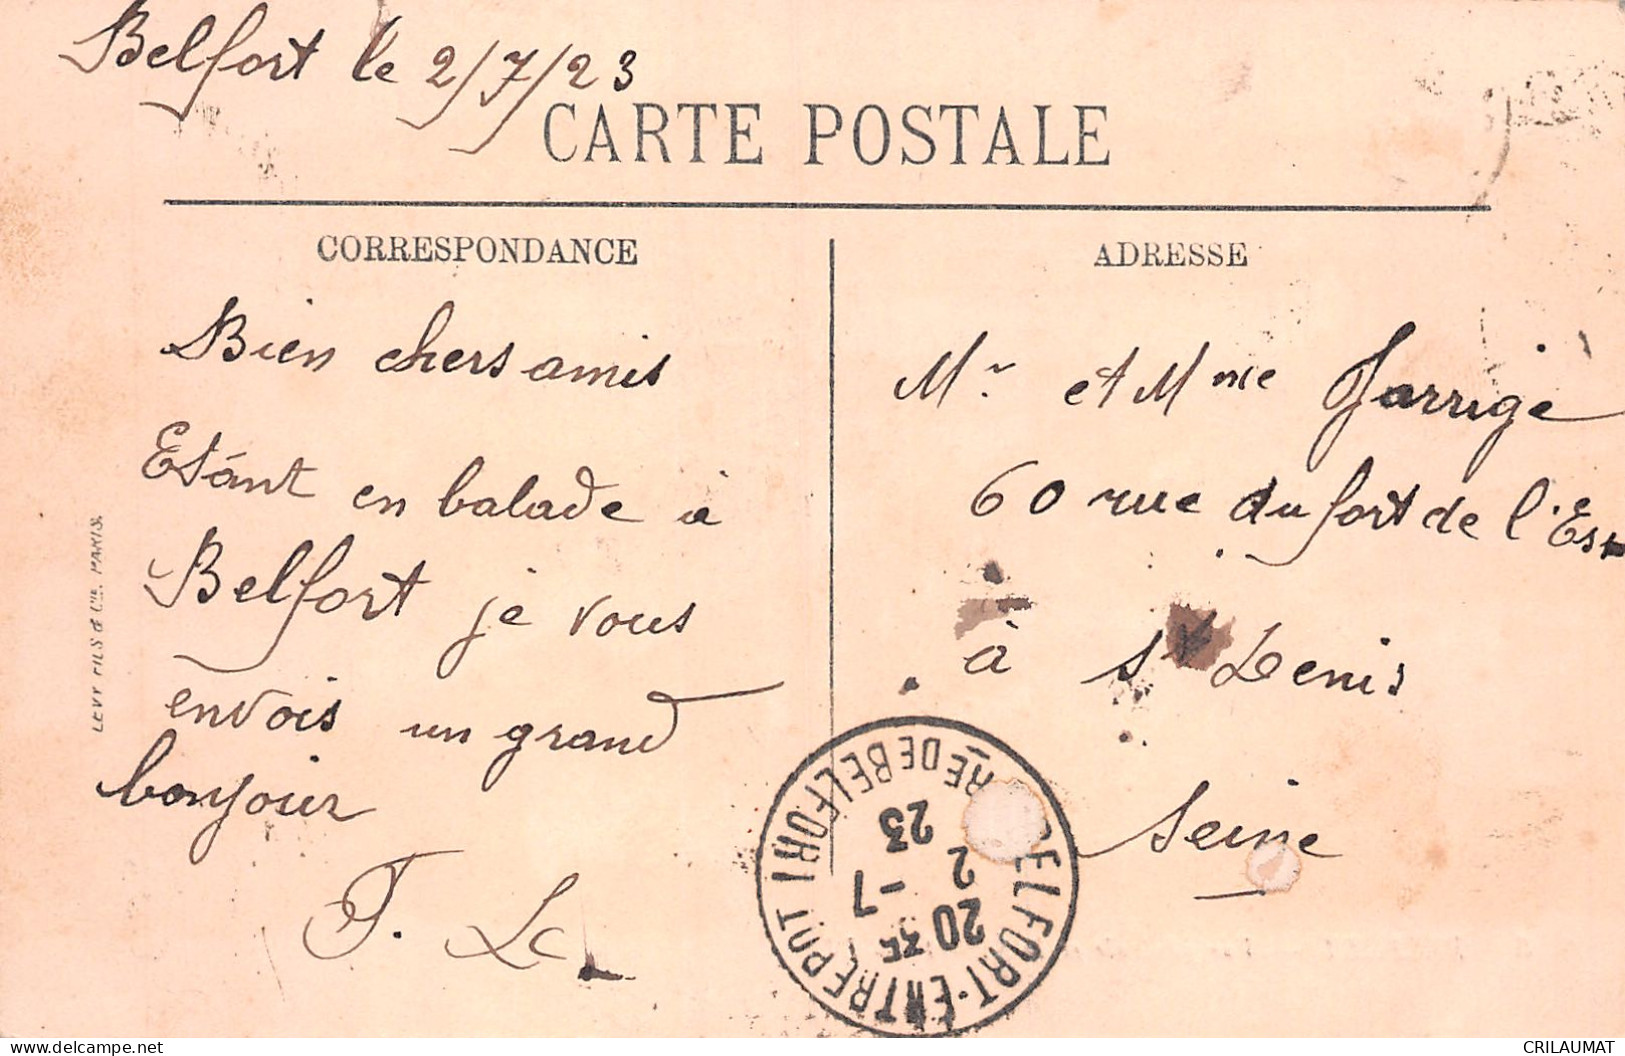 Belfort le 2/7/23
CARTE POSTALE
CORRESPONDANCE
Bien chers amis
Etant en balade à
Belfort je vous
envois un grand
bonjour
LEVY FILS & Cie. PARIS.
ADRESSE
Mr et Mme Jarrige
60 rue du fort de l'Est
à St Denis
Seine
BELFORT-ENTREPOT
20 35
2 -7
23
RE DE BELFORT
www.delcampe.net
CRILAUMAT